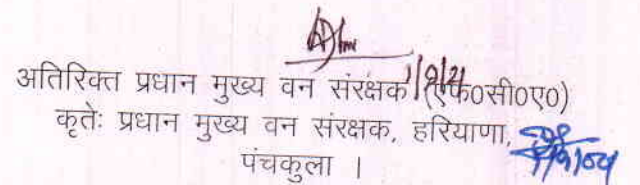 अतिरिक्त प्रधान मुख्य वन संरक्षक (एफ०सी०ए०)
कृतेः प्रधान मुख्य वन संरक्षक, हरियाणा,
पंचकुला ।